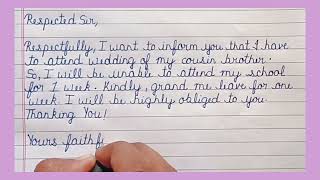 Respected Sir,
Respectfully, I want to inform you that I have
to attend wedding of my cousin brother.
So, I will be unable to attend my school
for 1 week. Kindly, grand me leave for one
week. I will be highly obliged to you.
Thanking You!
Yours faithf